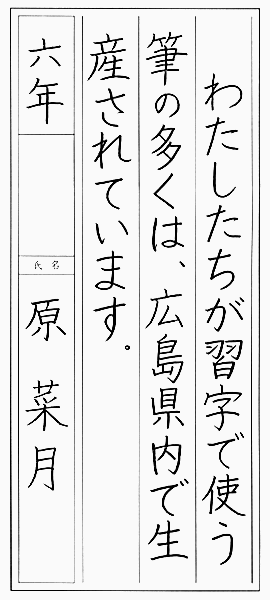 わたしたちが習字で使う
筆の多くは、広島県内で生
産されています。
六年
氏名
原菜月